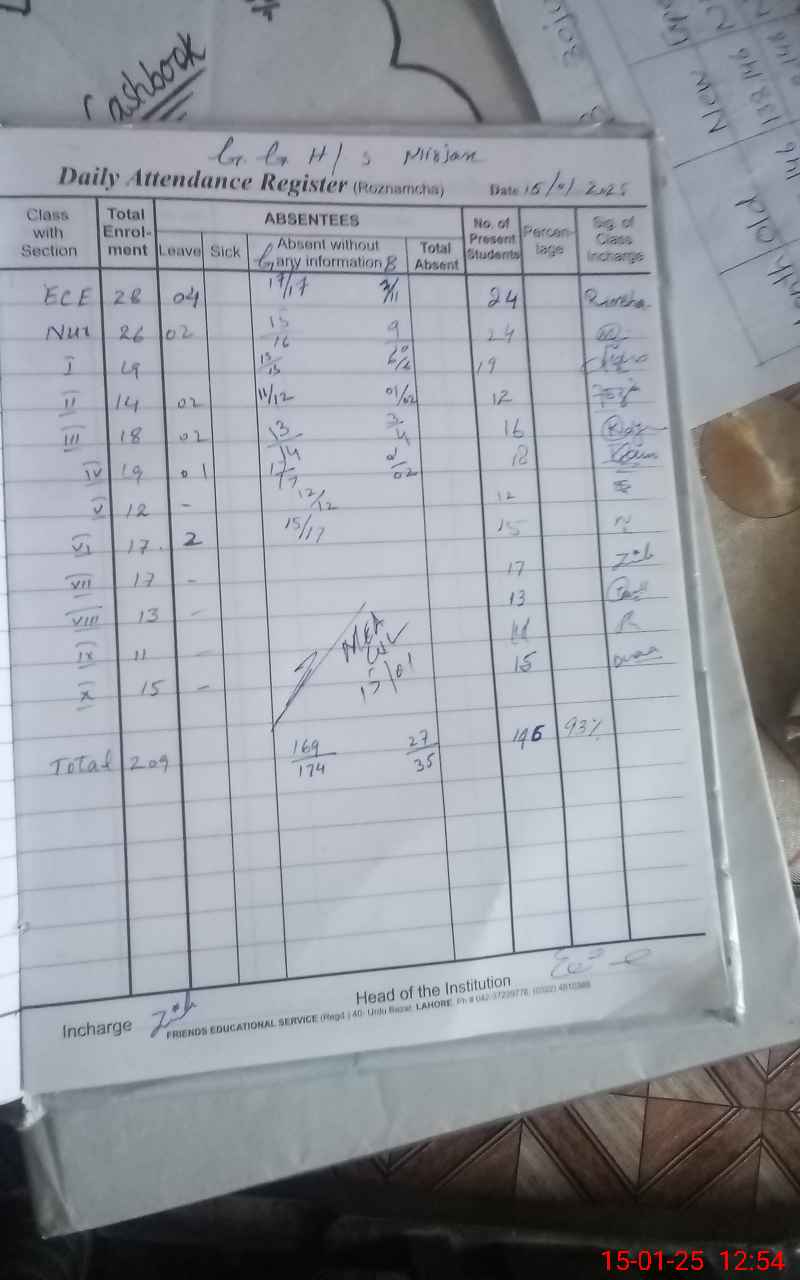 Cashbook
New
138 146
G. G. H/S Mirjan
Daily Attendance Register (Roznamcha) Date 15/01/2025
Class with Section Total Enrol-ment ABSENTEES No. of Present Students Percen-tage Sig. of Class Incharge
Leave Sick Absent without any information Total Absent
G B
ECE 28 04 17/17 24
Nur 26 02 15/16 9 24
I 19 13/13 6/6 19
II 14 02 11/12 01/02 12
III 18 02 13/14 3/4 16
IV 19 01 17/17 02 18
V 12 - 12/12 12
VI 17 2 15/17 15
VII 17 - 17
VIII 13 - 13
IX 11 - 11
X 15 - 15
15/01
Total 209 169/174 27/35 196 93%
Incharge Head of the Institution
FRIENDS EDUCATIONAL SERVICE (Regd.) 40- Urdu Bazar, LAHORE.
15-01-25 12:54